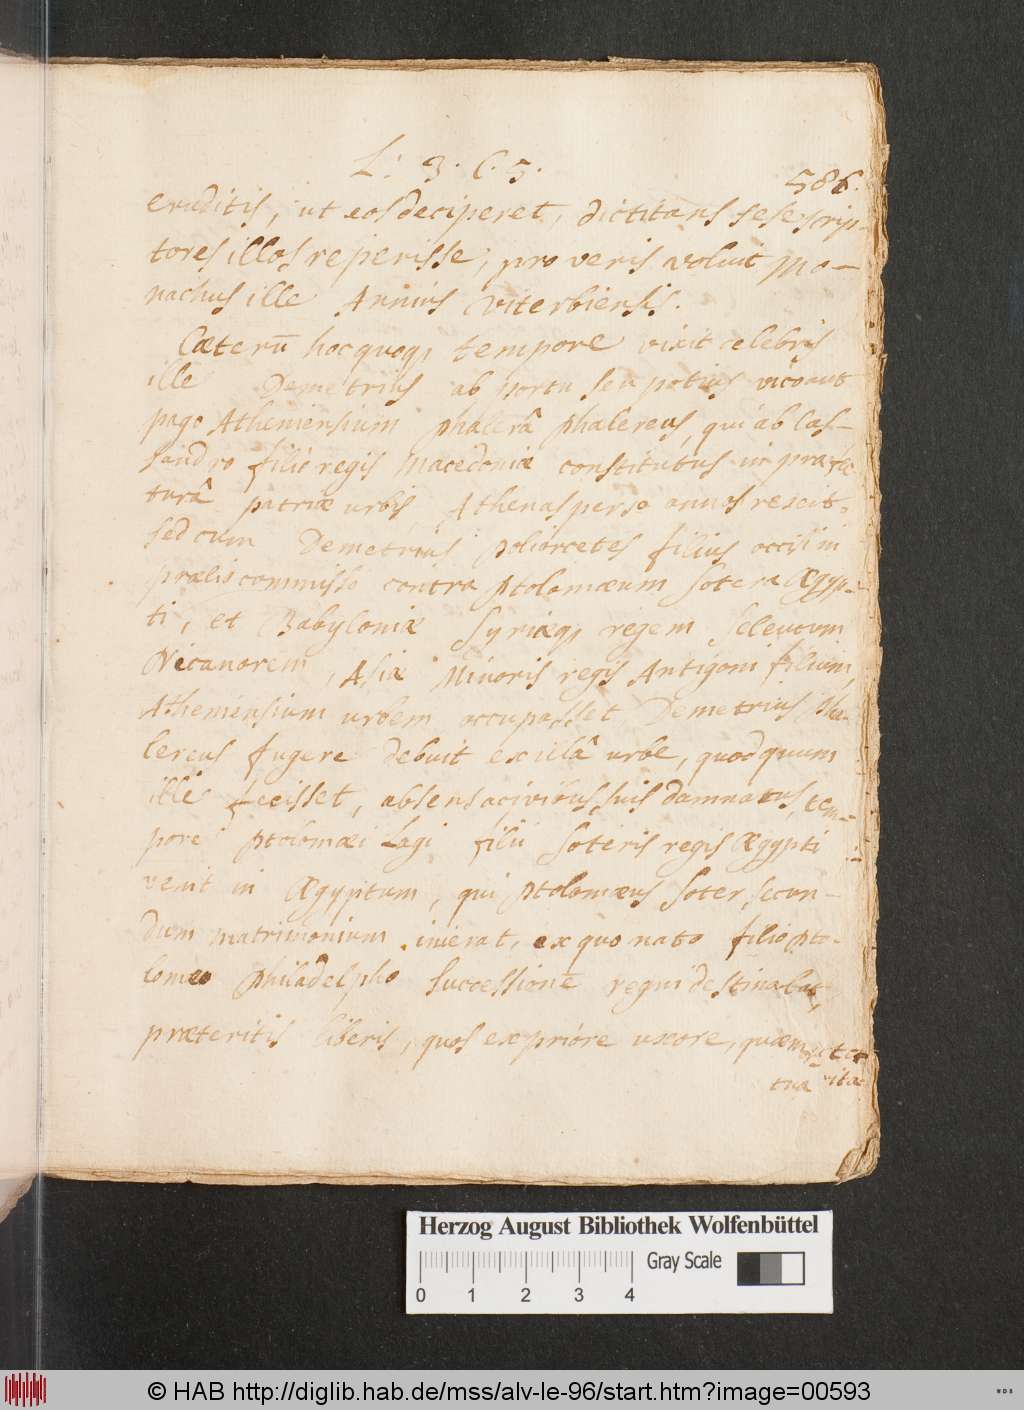 L: 3. C. 5.
586.
eruditis, ut eos deciperet, dictitans sese scrip-
tores illos reperisse, pro veris voluit Mo-
nachus ille Annius Viterbiensis.
Cæterū hoc quoq, tempore vixit celebris
ille Demetrius ab portu seu potius vico aut
pago Atheniensium phalerâ phalereus, qui ab Cas-
sandro filio regis Macedoniæ constitutus in præfec
turâ patriæ urbis Athenas per 10 annos rexit.
sed cum Demetrius poliorcetes filius occisi in
prælio commisso contra Ptolomæum Sotera Ægyp-
ti, et Babyloniæ Syriæq, regem Seleucum
Nicanorem, Asiæ Minoris regis Antigoni filium,
Atheniensium urbem occupasset, Demetrius Pha-
lereus fugere debuit ex illâ urbe, quod quum
ille fecisset, absens a civibus suis damnatus, tem-
pore Ptolomæi Lagi filii Soteris regis Ægypti
venit in Ægyptum, qui Ptolomæus Soter secun-
dum matrimonium inierat, ex quo nato filio Pto-
lomeo Philadelpho successionē regni destinabat,
præteritis liberis, quos ex priore uxore, quæ
tua vita
Herzog August Bibliothek Wolfenbüttel
Gray Scale
0 1 2 3 4
© HAB http://diglib.hab.de/mss/alv-le-96/start.htm?image=00593